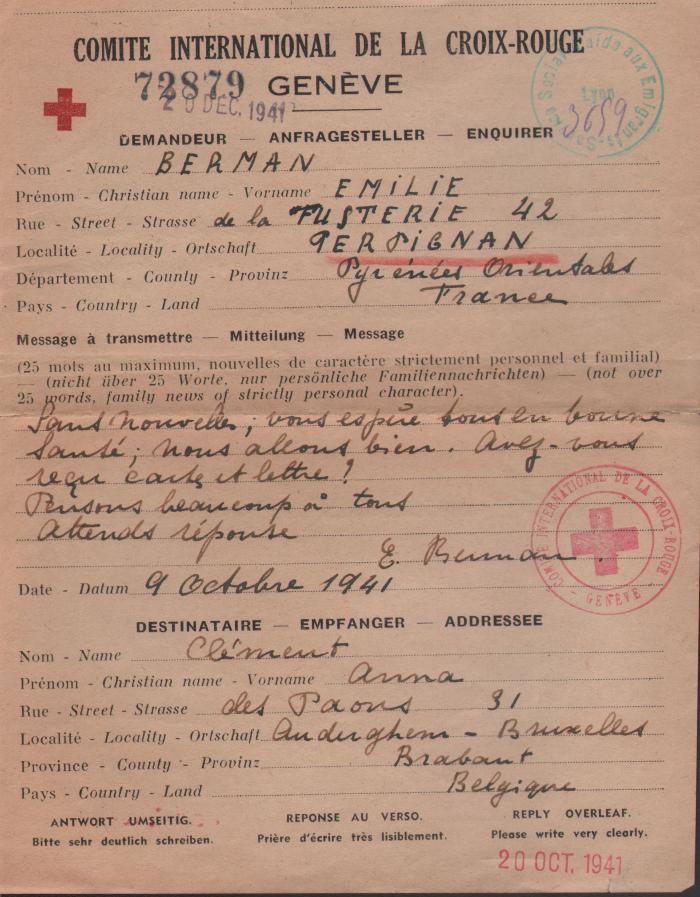 COMITE INTERNATIONAL DE LA CROIX-ROUGE
72879 GENÈVE
20 DEC. 1941
Service Social d'aide aux Emigrants
Lyon
3659
DEMANDEUR — ANFRAGESTELLER — ENQUIRER
Nom - Name BERMAN
Prénom - Christian name - Vorname EMILIE
Rue - Street - Strasse de la FUSTERIE 42
Localité - Locality - Ortschaft PERPIGNAN
Département - County - Provinz Pyrénées Orientales
Pays - Country - Land France
Message à transmettre — Mitteilung — Message
(25 mots au maximum, nouvelles de caractère strictement personnel et familial)
— (nicht über 25 Worte, nur persönliche Familiennachrichten) — (not over
25 words, family news of strictly personal character).
Sans nouvelles; vous espère tous en bonne
santé; nous allons bien. Avez-vous
reçu carte et lettre?
Pensons beaucoup à tous
Attends réponse
E. Berman.
COMITÉ INTERNATIONAL DE LA CROIX-ROUGE
- GENÈVE -
Date - Datum 9 Octobre 1941
DESTINATAIRE — EMPFANGER — ADDRESSEE
Nom - Name Clément
Prénom - Christian name - Vorname Anna
Rue - Street - Strasse des Paons 31
Localité - Locality - Ortschaft Auderghem - Bruxelles
Province - County - Provinz Brabant
Pays - Country - Land Belgique
ANTWORT UMSEITIG. REPONSE AU VERSO. REPLY OVERLEAF.
Bitte sehr deutlich schreiben. Prière d'écrire très lisiblement. Please write very clearly.
20 OCT. 1941